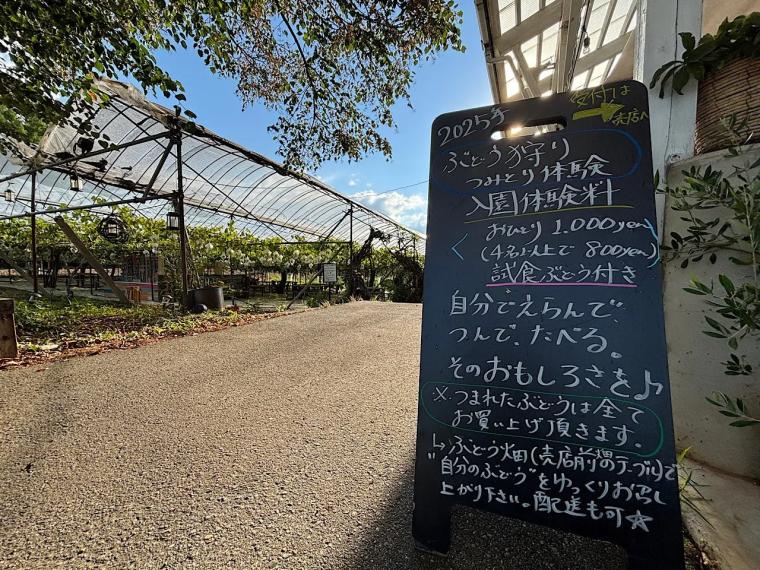 2025年
受付は
売店へ
ぶどう狩り
つみとり体験
入園体験料
おひとり 1.000yen
(4名以上で 800yen)
試食ぶどう付き
自分でえらんで、
つんで、たべる。
そのおもしろさを♪
※つまれたぶどうは全て
お買い上げ頂きます。
↳ぶどう畑(売店前畑のテーブル)で
"自分のぶどう"をゆっくりお召し
上がり下さい。配送も可☆